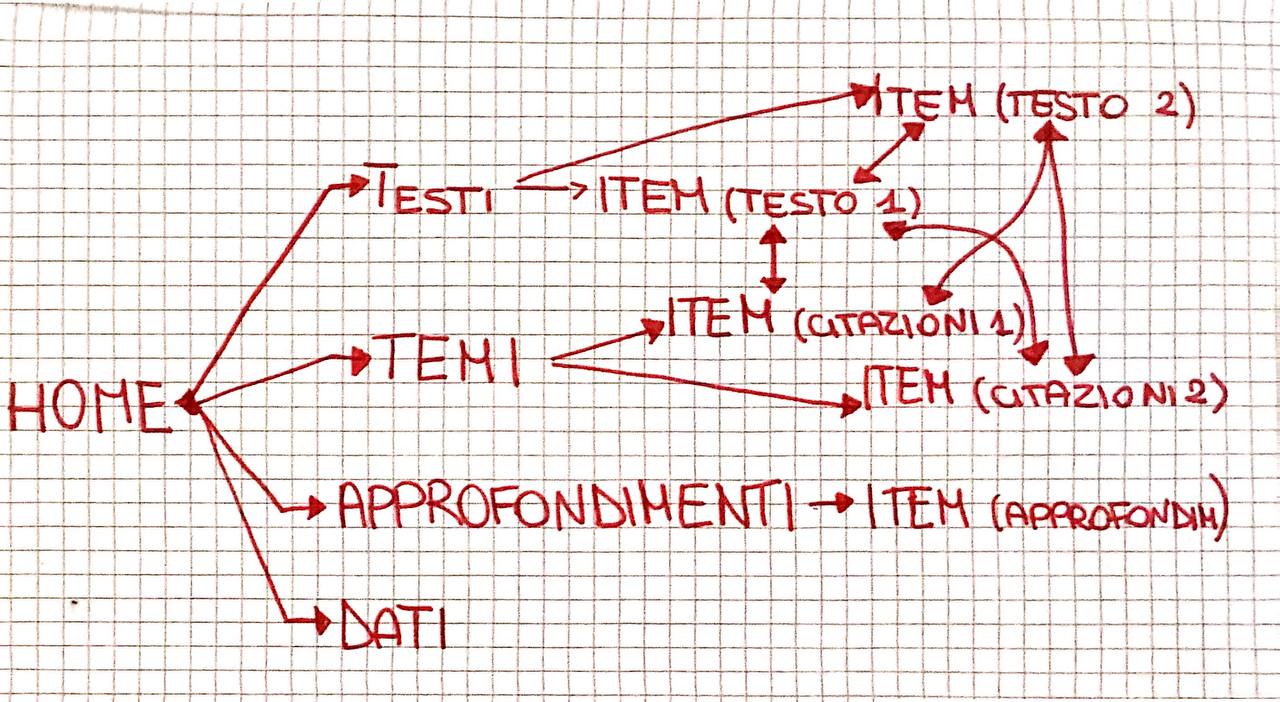 ITEM (TESTO 2)
TESTI
ITEM (TESTO 1)
ITEM (CITAZIONI 1)
TEMI
ITEM (CITAZIONI 2)
HOME
APPROFONDIMENTI
ITEM (APPROFONDIM)
DATI